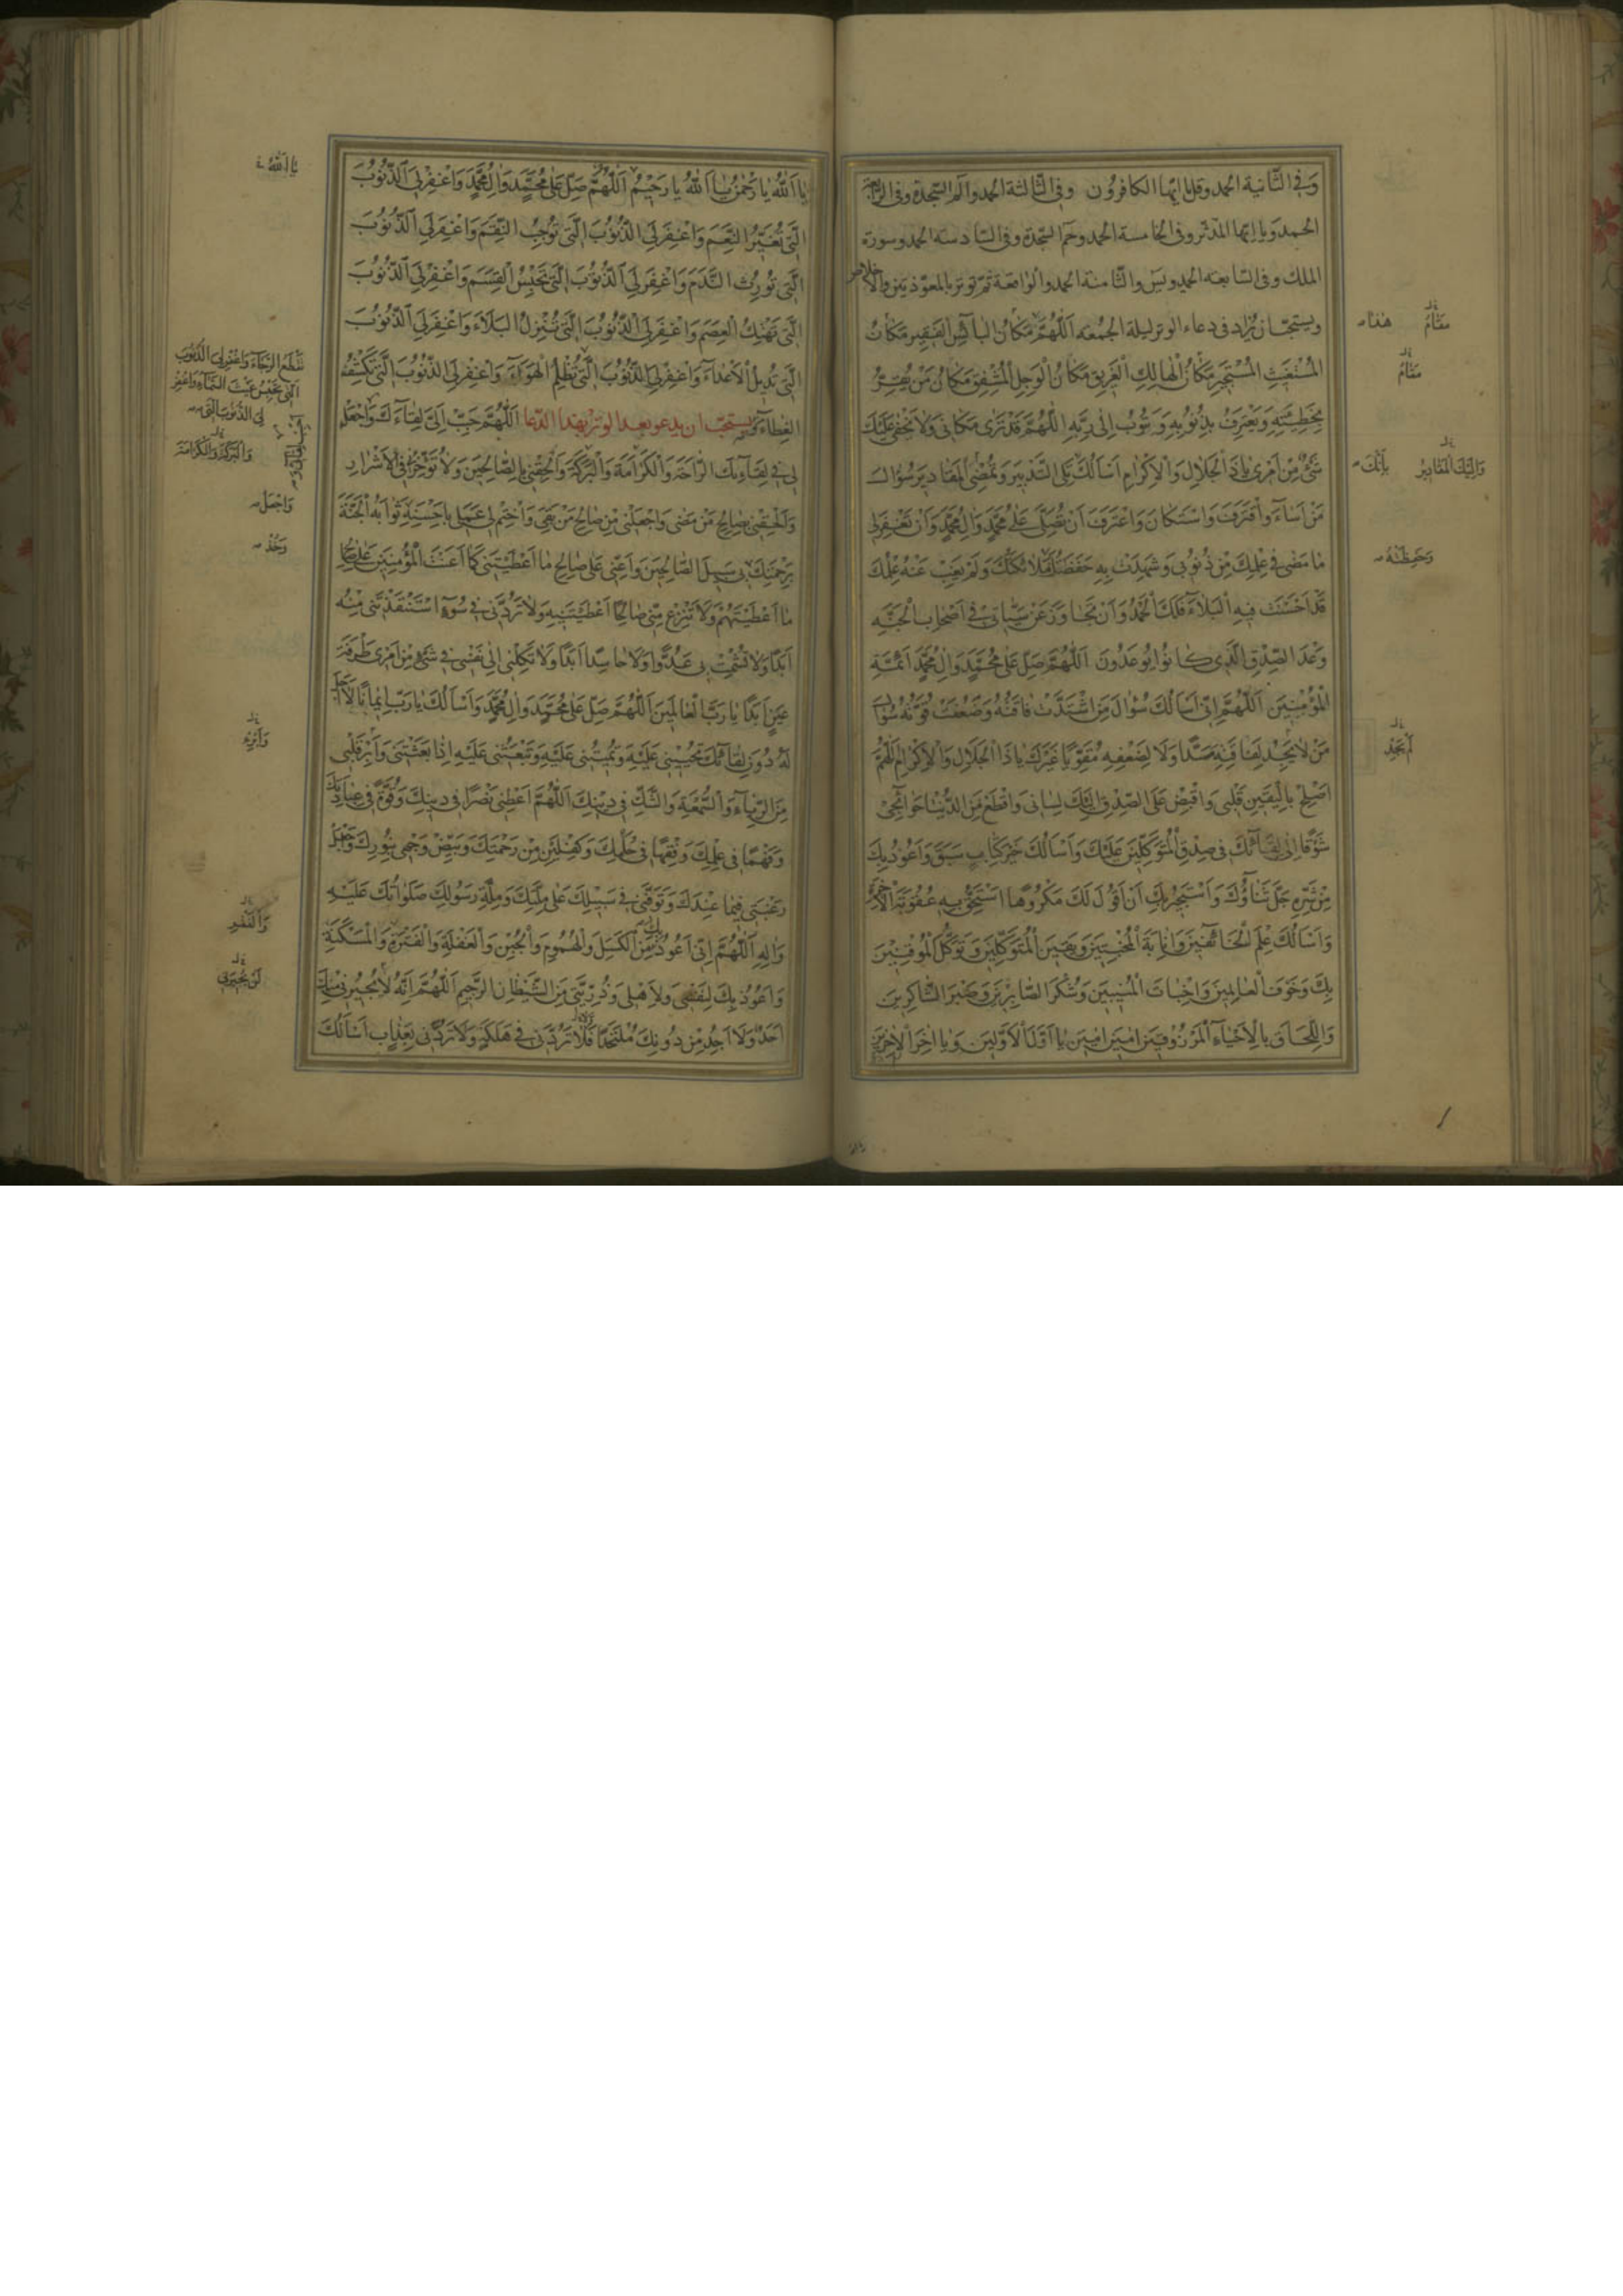 وَفِى الثَّانية الحمد وقل يا ايّها الكافرون وفى الثّالثة الحمد والم السّجدة وفى الرّابعة
الحمد ويا ايّها المدّثّر وفى الخامسة الحمد وحم السّجدة وفى السّادسة الحمد وسورة
الملك وفى السّابعة الحمد ويس والثّامنة الحمد والواقعة ثمّ توتر بالمعوّذتين والاخلاص
ويستحبّ ان يزاد فى دعاء الوتر ليلة الجمعة اَللّهُمَّ مَكَانُ البَآئِسِ الفَقِيرِ مَكَانُ
المُسْتَغِيثِ المُسْتَجِيرِ مَكَانُ الْهَالِكِ الْغَرِيقِ مَكَانُ الْوَجِلِ الْمُشْفِقِ مَكَانُ مَنْ يُقِرُّ
بِخَطِيئَتِهِ وَيَعْتَرِفُ بِذُنُوبِهِ وَيَتُوبُ اِلى رَبِّهِ اَللّهُمَّ قَدْ تَرى مَكَانِى وَلا يَخْفى عَلَيْكَ
شَىْءٌ مِنْ اَمْرِى يا ذَا الْجَلالِ وَالْاِكْرامِ اَسْاَلُكَ تَلِى التَّدْبِيرَ وَتُمْضِى الْمَقَادِيرَ سُؤَالَ
مَنْ اَسآءَ وَاقْتَرَفَ وَاسْتَكَانَ وَاعْتَرَفَ اَنْ تُصَلِّىَ عَلى مُحَمَّدٍ وَالِ مُحَمَّدٍ وَاَنْ تَغْفِرَ لِى
مَا مَضى فِى عِلْمِكَ مِنْ ذُنُوبِى وَشَهِدَتْ بِهِ حَفَظَتُكَ مَلائِكَتُكَ وَلَمْ يَغِبْ عَنْهُ عِلْمُكَ
قَدْ اَحْسَنْتَ فِيهِ الْبَلاءَ فَلَكَ الْحَمْدُ وَاَنْ تَجَاوَزَ عَنْ سَيِّئَاتِى فِى اَصْحَابِ الْجَنَّةِ
وَعْدَ الصِّدْقِ الَّذِى كَانُوا يُوعَدُونَ اَللّهُمَّ صَلِّ عَلى مُحَمَّدٍ وَالِ مُحَمَّدٍ اَئِمَّةِ
الْمُؤْمِنِينَ اَللّهُمَّ اِنِّى اَسْاَلُكَ سُؤَالَ مَنِ اشْتَدَّتْ فَاقَتُهُ وَضَعُفَتْ قُوَّتُهُ سُؤَالَ
مَنْ لا يَجِدُ لِفَاقَتِهِ مَسَدًّا وَلا لِضَعْفِهِ مُقَوِّيًا غَيْرَكَ يا ذَا الْجَلالِ وَالْاِكْرامِ اَللّهُمَّ
اَصْلِحْ بِالْيَقِينِ قَلْبِى وَاقْبِضْ عَلَى الصِّدْقِ اِلَيْكَ لِسَانِى وَاقْطَعْ مِنَ الدُّنْيَا حَوَائِجِى
شَوْقًا اِلى لِقَآئِكَ فِى صِدْقِ الْمُتَوَكِّلِينَ عَلَيْكَ وَاَسْاَلُكَ خَيْرَ كِتَابٍ سَبَقَ وَاَعُوذُ بِكَ
مِنْ شَرِّهِ جَلَّ ثَنَاؤُكَ وَاَسْتَجِيرُ بِكَ اَنْ اَقُولَ لَكَ مَكْرُوهًا اَسْتَحِقُّ بِهِ عُقُوبَةَ الْاخِرَةِ
وَاَسْاَلُكَ عِلْمَ الْخَائِفِينَ وَاِنَابَةَ الْمُخْبِتِينَ وَيَقِينَ الْمُتَوَكِّلِينَ وَتَوَكُّلَ الْمُوقِنِينَ
بِكَ وَخَوْفَ الْعَالِمِينَ وَاِخْبَاتَ الْمُنِيبِينَ وَشُكْرَ الصَّابِرِينَ وَصَبْرَ الشَّاكِرِينَ
وَاللِّحَاقَ بِالْاَحْيَاءِ الْمَرْزُوقِينَ امِينَ امِينَ يا اَوَّلَ الْاَوَّلِينَ وَيا اخِرَ الْاخِرِينَ
مَقَامُ
هٰذا
مَقَامُ
وَاِلَيْكَ الْمَقَادِيرُ
بِاَنَّكَ
وَحَفِظَتْهُ
لَمْ يَجِدْ
يا اَللهُ يا رَحْمنُ يا اَللهُ يا رَحِيمُ اَللّهُمَّ صَلِّ عَلى مُحَمَّدٍ وَالِ مُحَمَّدٍ وَاغْفِرْ لِىَ الذُّنُوبَ
الَّتِى تُغَيِّرُ النِّعَمَ وَاغْفِرْ لِىَ الذُّنُوبَ الَّتِى تُوجِبُ النِّقَمَ وَاغْفِرْ لِىَ الذُّنُوبَ
الَّتِى تُورِثُ النَّدَمَ وَاغْفِرْ لِىَ الذُّنُوبَ الَّتِى تَحْبِسُ الْقِسَمَ وَاغْفِرْ لِىَ الذُّنُوبَ
الَّتِى تَهْتِكُ الْعِصَمَ وَاغْفِرْ لِىَ الذُّنُوبَ الَّتِى تُنْزِلُ الْبَلاءَ وَاغْفِرْ لِىَ الذُّنُوبَ
الَّتِى تُدِيلُ الْاَعْدَآءَ وَاغْفِرْ لِىَ الذُّنُوبَ الَّتِى تُظْلِمُ الْهَوَآءَ وَاغْفِرْ لِىَ الذُّنُوبَ الَّتِى تَكْشِفُ
الغِطَاءَ ويستحبّ ان يدعو بعد الوتر بهذا الدّعا اَللّهُمَّ حَبِّبْ اِلَىَّ لِقَاءَكَ وَاجْعَلْ
لِى فِى لِقَاءِكَ الرَّاحَةَ وَالْكَرَامَةَ وَالْبَرَكَةَ وَاَلْحِقْنِى بِالصَّالِحِينَ وَلا تُؤَخِّرْنِى فِى الْاَشْرَارِ
وَاَلْحِقْنِى بِصَالِحِ مَنْ مَضى وَاجْعَلْنِى مِنْ صَالِحِ مَنْ بَقِىَ وَاخْتِمْ لِى عَمَلِى بِاَحْسَنِهِ ثَوَابُهُ الْجَنَّةَ
بِرَحْمَتِكَ بِى سَبِيلَ الصَّالِحِينَ وَاَعِنِّى عَلى صَالِحِ مَا اَعْطَيْتَنِى كَمَا اَعَنْتَ الْمُؤْمِنِينَ عَلى صَالِحِ
مَا اَعْطَيْتَهُمْ وَلا تَنْزِعْ مِنِّى صَالِحًا اَعْطَيْتَنِيهِ وَلا تَرُدَّنِى فِى سُوءٍ اسْتَنْقَذْتَنِى مِنْهُ
اَبَدًا وَلا تُشْمِتْ بِى عَدُوًّا وَلا حَاسِدًا اَبَدًا وَلا تَكِلْنِى اِلى نَفْسِى فِى شَىْءٍ مِنْ اَمْرِى طَرْفَةَ
عَيْنٍ اَبَدًا يا رَبَّ الْعَالَمِينَ اَللّهُمَّ صَلِّ عَلى مُحَمَّدٍ وَالِ مُحَمَّدٍ وَاَسْاَلُكَ يا رَبِّ اِيمَانًا لا اَجَلَ
لَهُ دُونَ لِقَآئِكَ تُحْيِينِى عَلَيْهِ وَتُمِيتُنِى عَلَيْهِ وَتَبْعَثُنِى عَلَيْهِ اِذا بَعَثْتَنِى وَاَبْرِ قَلْبِى
مِنَ الرِّيَآءِ وَالسُّمْعَةِ وَالشَّكِّ فِى دِينِكَ اَللّهُمَّ اَعْطِنِى نَصْرًا فِى دِينِكَ وَقُوَّةً فِى عِبَادَتِكَ
وَفَهْمًا فِى عِلْمِكَ وَفِقْهًا فِى حُكْمِكَ وَكِفْلَيْنِ مِنْ رَحْمَتِكَ وَبَيِّضْ وَجْهِى بِنُورِكَ وَاجْعَلْ
رَغْبَتِى فِيمَا عِنْدَكَ وَتَوَفَّنِى فِى سَبِيلِكَ عَلى مِلَّتِكَ وَمِلَّةِ رَسُولِكَ صَلَوَاتُكَ عَلَيْهِ
وَالِهِ اَللّهُمَّ اِنِّى اَعُوذُ بِكَ مِنَ الْكَسَلِ وَالْهُمُومِ وَالْجُبْنِ وَالْغَفْلَةِ وَالْفَتْرَةِ وَالْمَسْكَنَةِ
وَاَعُوذُ بِكَ لِنَفْسِى وَلِاَهْلِى وَذُرِّيَّتِى مِنَ الشَّيْطَانِ الرَّجِيمِ اَللّهُمَّ اِنَّهُ لا يُجِيرُنِى مِنْكَ
اَحَدٌ وَلا اَجِدُ مِنْ دُونِكَ مُلْتَحَدًا فَلا تَرُدَّنِى فِى هَلَكَةٍ وَلا تَرُدَّنِى بِعَذَابٍ اَسْاَلُكَ
يا اَللهُ
تَقْطَعُ الرَّجَآءَ وَاغْفِرْ لِىَ الذُّنُوبَ
الَّتِى تَحْبِسُ غَيْثَ السَّمَآءِ وَاغْفِرْ
لِىَ الذُّنُوبَ الَّتِى
وَالْبَرَكَةَ وَالْكَرَامَةَ
وَاجْعَلْ
وَخُذْ
وَاَبْرِءْ
وَالْفَقْرِ
لَنْ يُجِيرَنِى